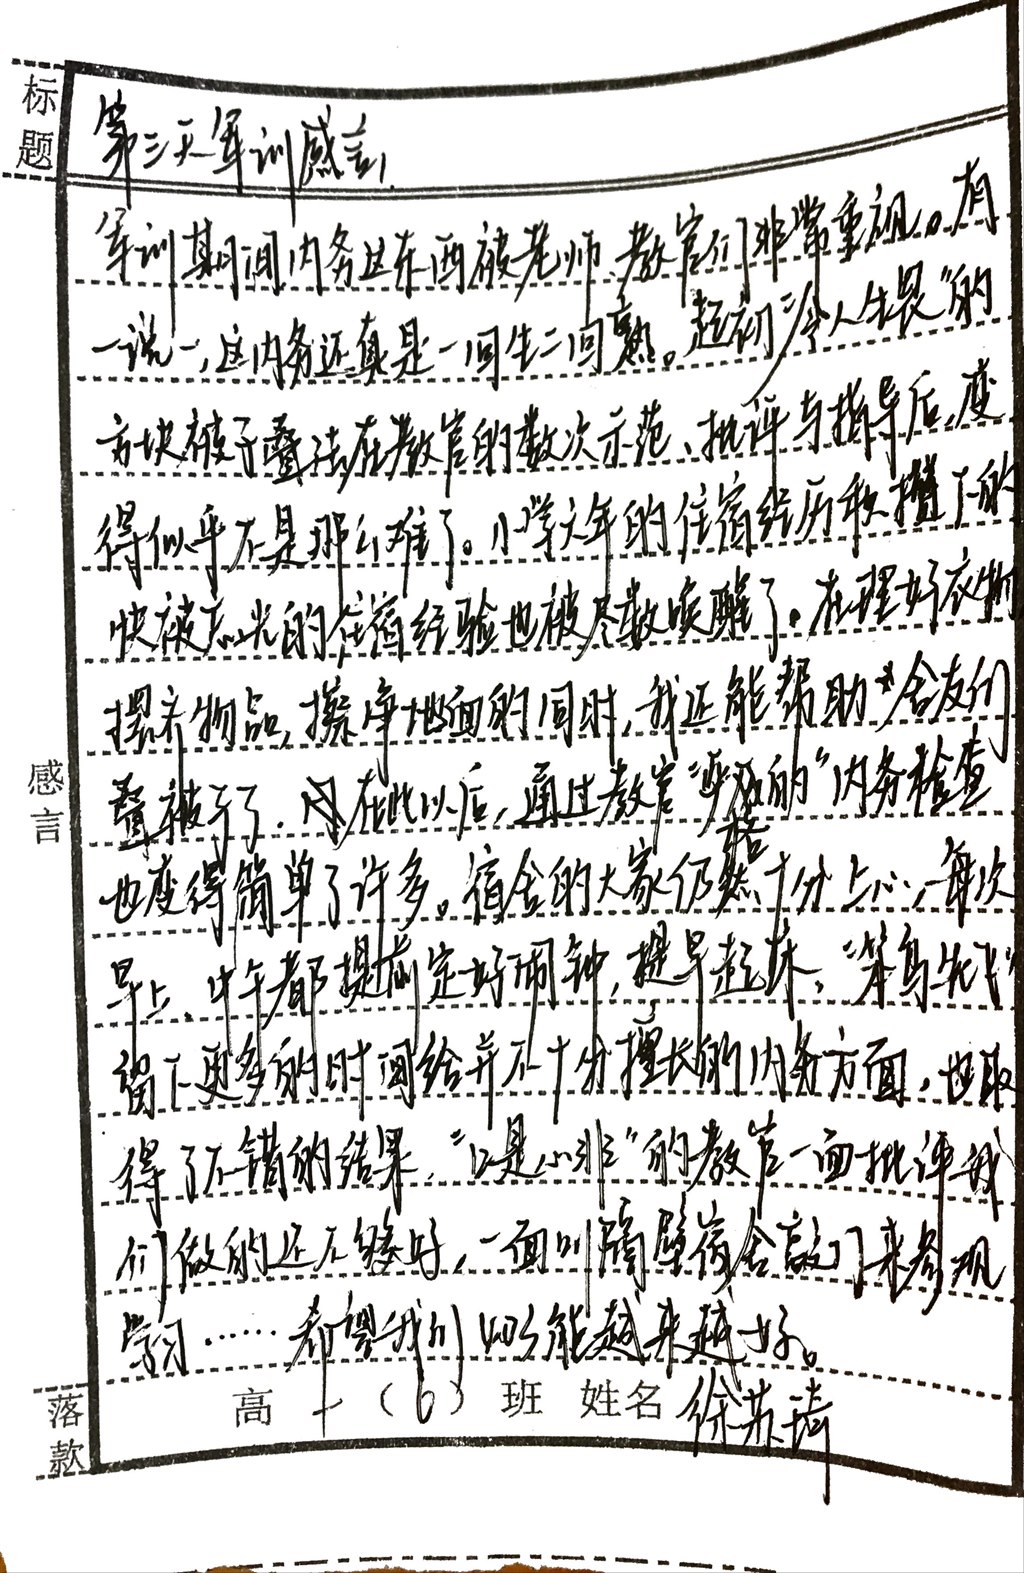 标题
第三天军训感言
军训期间内务这东西被老师、教官们非常重视。有
一说一，这内务还真是一回生二回熟。起初“令人生畏”的
方块被子叠法在教官的数次示范、批评与指导后，变
得似乎不是那么难了。小学六年的住宿经历积攒下的
快被忘光的住宿经验也被尽数唤醒了。在理好衣物
摆齐物品，擦净地面的同时，我还能帮助舍友们
叠被子了。在此以后，通过教官“严格的”内务检查
也变得简单了许多。宿舍的大家仍然十分上心，每次
早上、中午都提前定好闹钟，提早起床，“笨鸟先飞”
留下更多的时间给并不十分擅长的内务方面，也取
得了不错的结果，“口是心非”的教官一面批评我
们做的还不够好，一面叫隔壁宿舍敲门来参观
学习……希望我们 408 能越来越好。
感言
落款
高一（6）班 姓名 徐苏